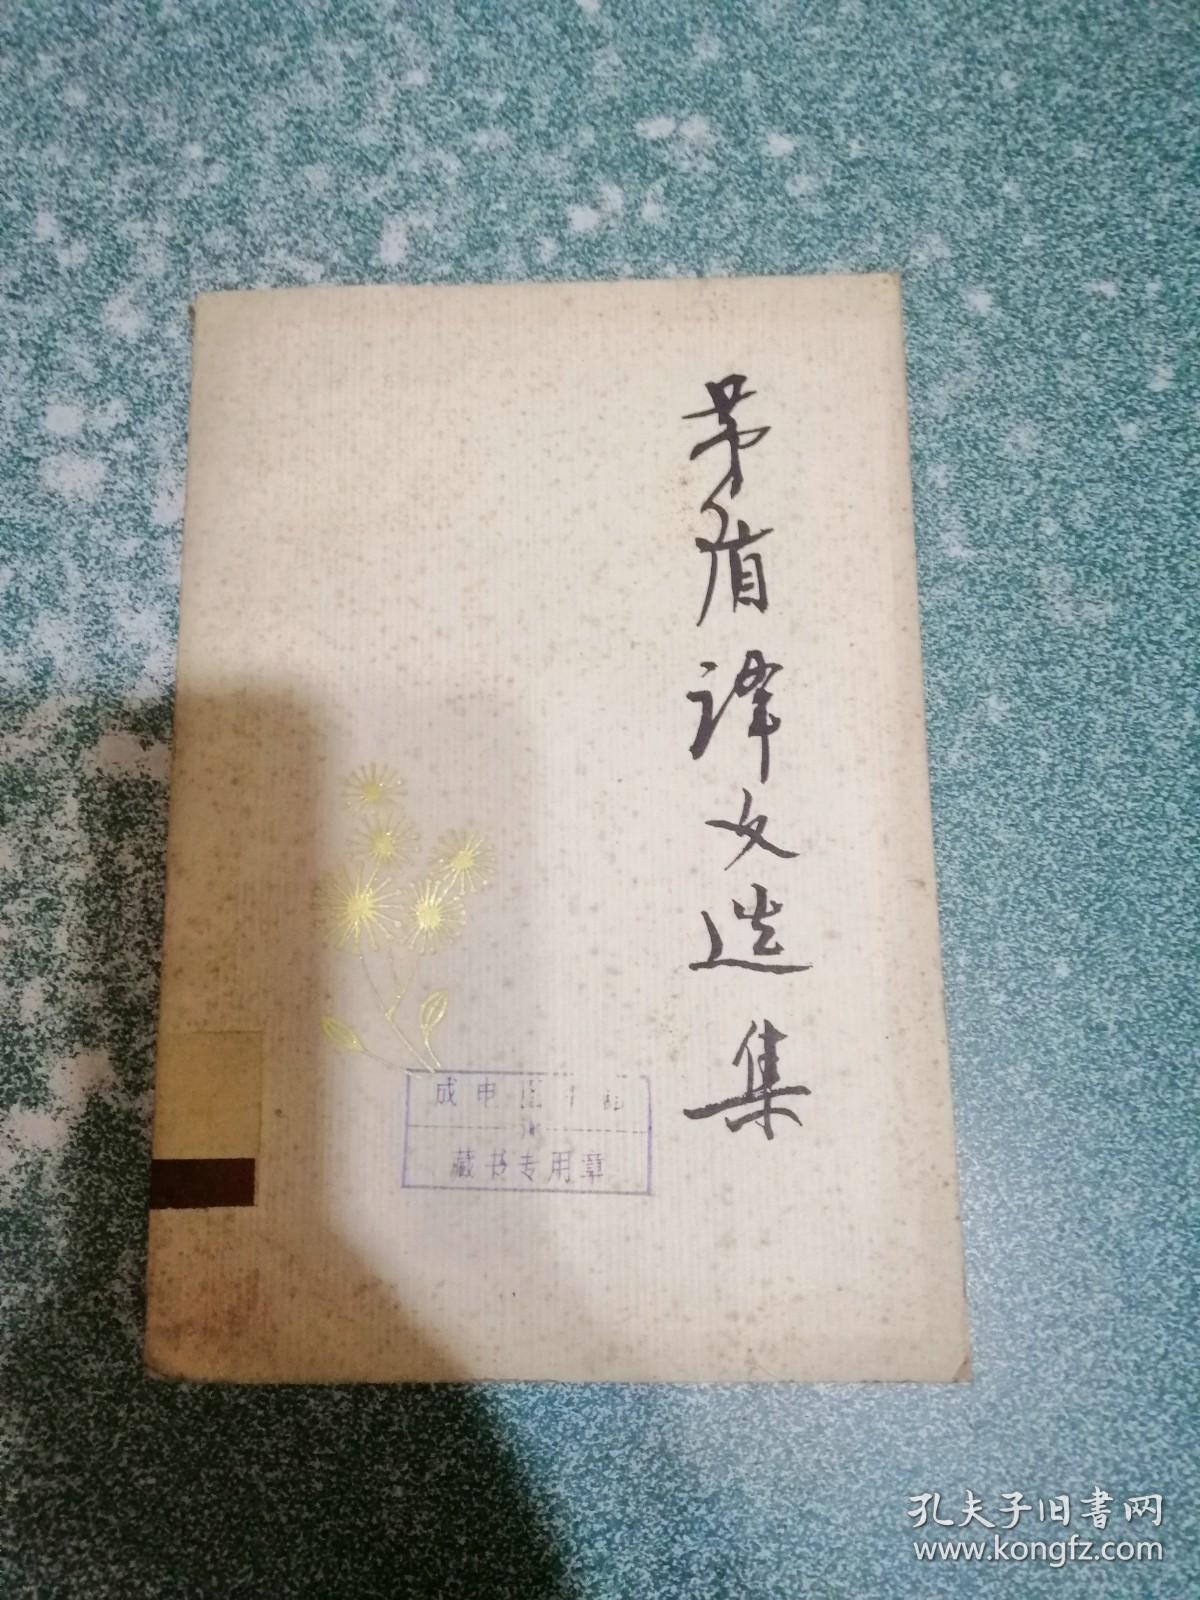 茅盾译文选集
成电图书馆
藏书专用章
孔夫子旧書网
www.kongfz.com